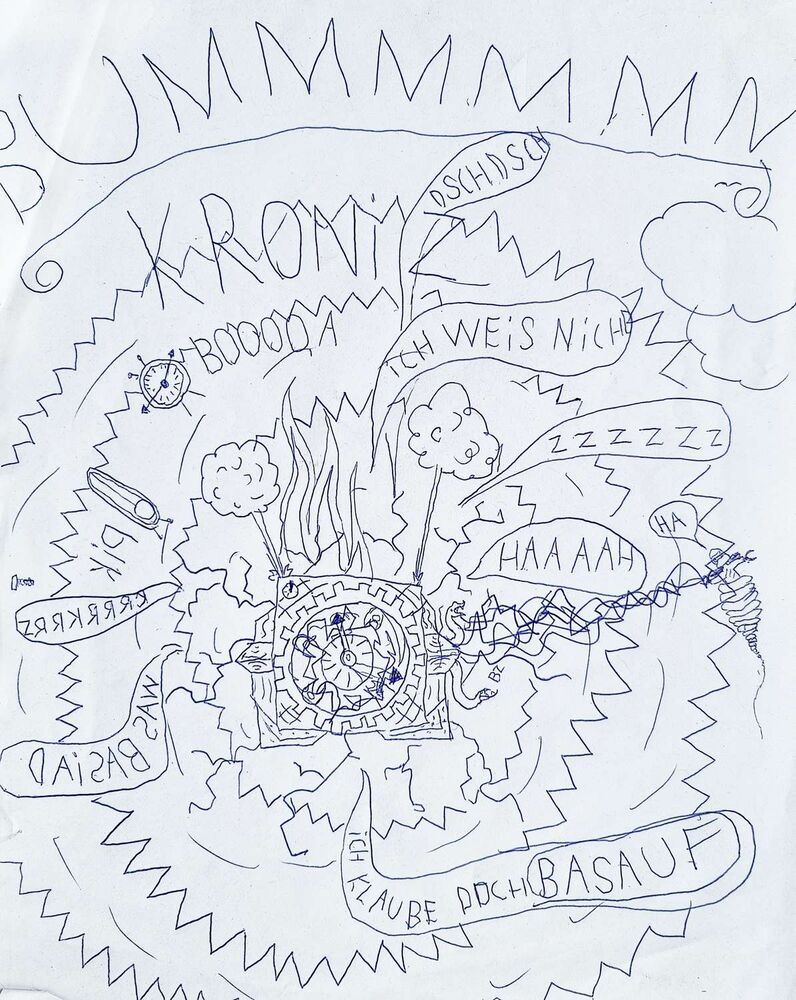 BUMMMMMM
DSCHDSCH
KRONi
BOOOOA
iCH WEiS NiCHt
ZZZZZZ
HA
HAAAAH
KRRRKRRZ
BZ
WAS
BASiAD
iCH KLAUBE DOCH BASAUF